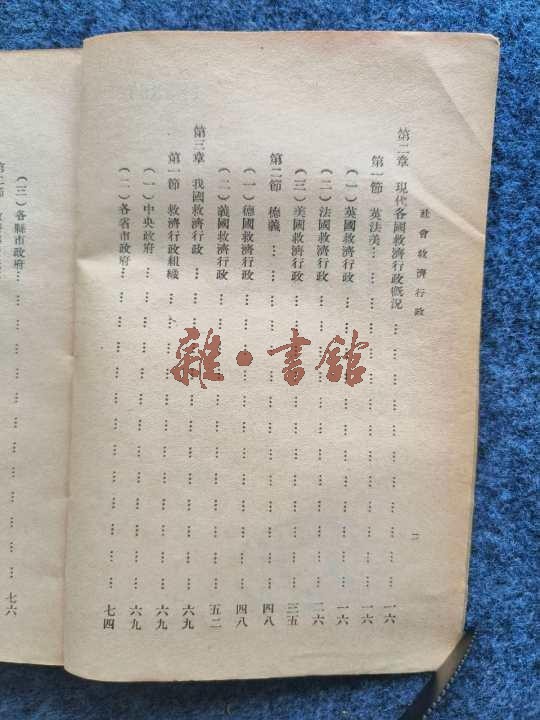 社會救濟行政
二
第二章 現代各國救濟行政概況………………………………一六
第一節 英法美………………………………一六
（一）英國救濟行政………………………………一六
（二）法國救濟行政………………………………二六
（三）美國救濟行政………………………………三五
第二節 德義………………………………四八
（一）德國救濟行政………………………………四八
（二）義國救濟行政………………………………五二
第三章 我國救濟行政………………………………六九
第一節 救濟行政組織………………………………六九
（一）中央政府………………………………六九
（二）各省市政府………………………………七四
（三）各縣市政府………………………………七六
第二節
雜·書館